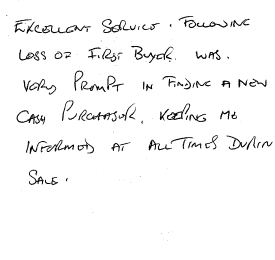 EXCELLENT SERVICE. FOLLOWING
LOSS OF FIRST BUYER. WAS.
VERY PROMPT IN FINDING A NEW
CASH PURCHASOR. KEEPING ME
INFORMED AT ALL TIMES DURIN
SALE.